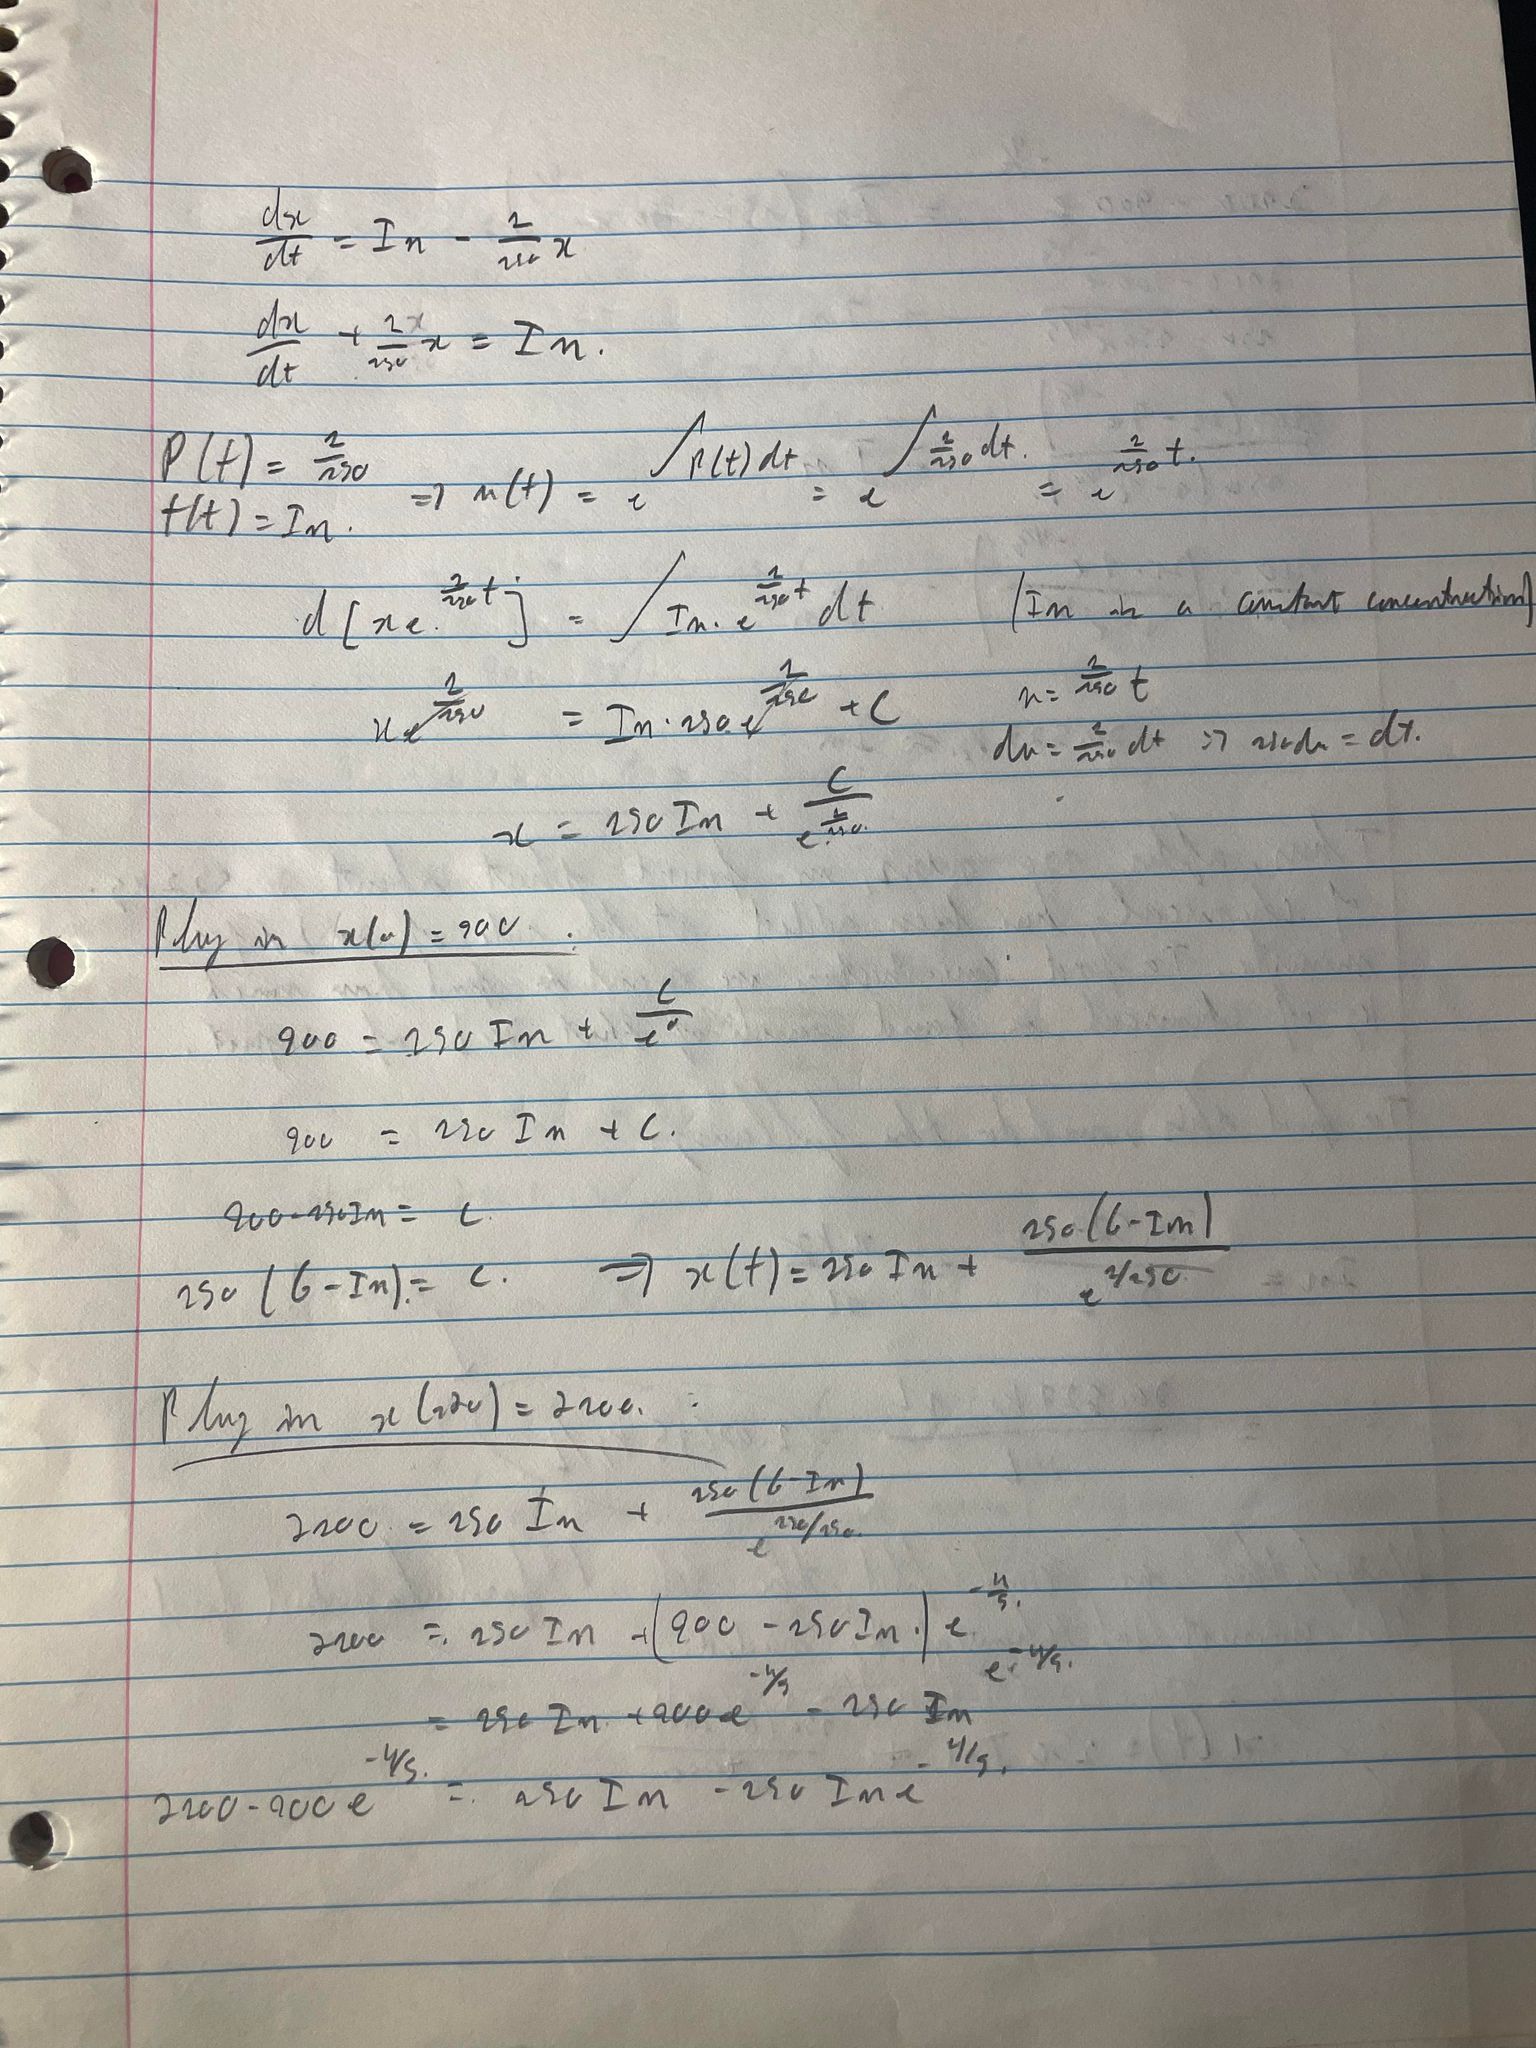 dx/dt = In - 1/150 x
dx/dt + 1/150 x = In.
P(t) = 1/150
f(t) = In. ⇒ u(t) = e^∫P(t)dt = e^∫1/150 dt. = e^(1/150 t).
d[xe^(1/150 t)] = ∫ In. e^(1/150 t) dt (In is a constant concentration)
xe^(1/150) = In · 150 e^(1/150) + C u = 1/150 t
du = 1/150 dt ⇒ 150du = dt.
x = 150 In + C/e^(1/150).
Plug in x(0) = 900 :
900 = 150 In + C/e^0
900 = 150 In + C.
900 - 150In = C
150 (6 - In) = C. ⇒ x(t) = 150 In + 150(6 - In)/e^(1/150)
Plug in x(120) = 2100. :
2100 = 150 In + 150(6 - In)/e^(120/150)
2100 = 150 In + (900 - 150In.) e^(-4/5).
= 150 In + 900e^(-4/5) - 150 In e^(-4/5).
2100 - 900e^(-4/5) = 150 In - 150 In e^(-4/5).